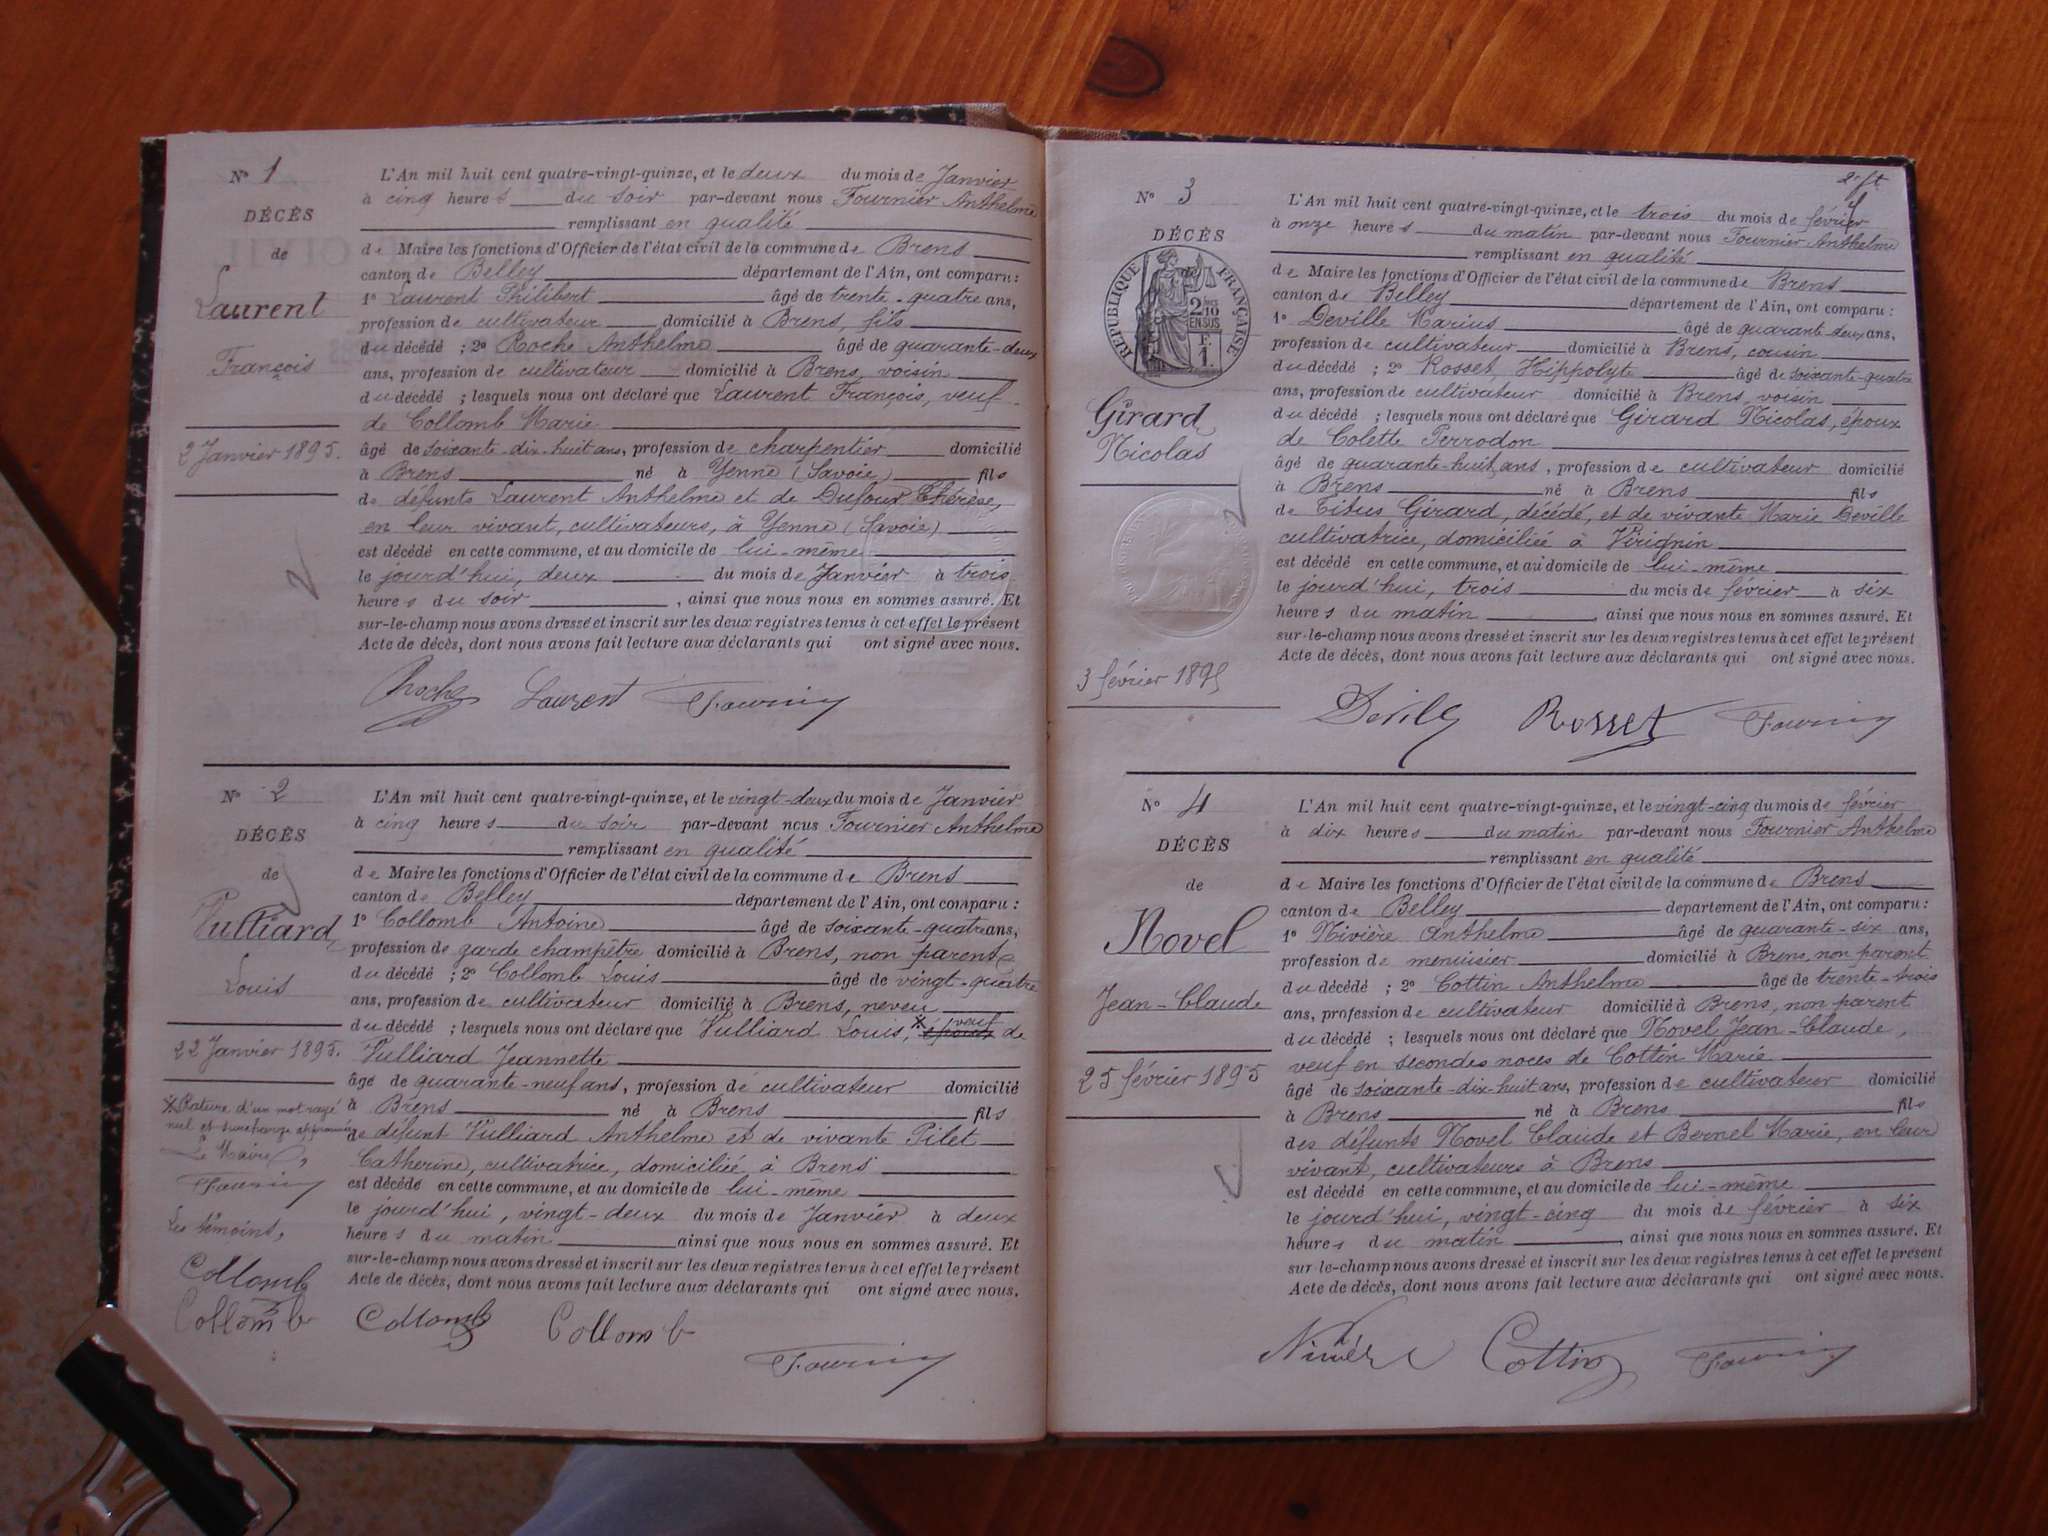 Nº 1
DÉCÈS
de
Laurent
François
2 Janvier 1895.
L'An mil huit cent quatre-vingt-quinze, et le deux du mois de Janvier
à cinq heures du soir par-devant nous Fournier Anthelme
remplissant en qualité
de Maire les fonctions d'Officier de l'état civil de la commune de Brens
canton de Belley département de l'Ain, ont comparu :
1º Laurent Philibert âgé de trente-quatre ans,
profession de cultivateur domicilié à Brens, fils
du décédé ; 2º Roche Anthelme âgé de quarante-deux
ans, profession de cultivateur domicilié à Brens, voisin
du décédé ; lesquels nous ont déclaré que Laurent François, veuf
de Collomb Marie
âgé de soixante-dix-huit ans, profession de charpentier domicilié
à Brens né à Yenne (Savoie) fils
de défunts Laurent Anthelme et de Dufour Thérèse,
en leur vivant, cultivateurs, à Yenne (Savoie)
est décédé en cette commune, et au domicile de lui-même
le jourd'hui, deux du mois de Janvier à trois
heures du soir, ainsi que nous nous en sommes assuré. Et
sur-le-champ nous avons dressé et inscrit sur les deux registres tenus à cet effet le présent
Acte de décès, dont nous avons fait lecture aux déclarants qui ont signé avec nous.
Roche Laurent Fournier
Nº 2
DÉCÈS
de
Vulliard
Louis
22 Janvier 1895.
X Rature d'un mot rayé
nul et surcharge approuvée
Le Maire,
Fournier
Les témoins,
Collomb
Collomb
L'An mil huit cent quatre-vingt-quinze, et le vingt-deux du mois de Janvier
à cinq heures du soir par-devant nous Fournier Anthelme
remplissant en qualité
de Maire les fonctions d'Officier de l'état civil de la commune de Brens
canton de Belley département de l'Ain, ont comparu :
1º Collomb Antoine âgé de soixante-quatre ans,
profession de garde champêtre domicilié à Brens, non parent
du décédé ; 2º Collomb Louis âgé de vingt-quatre
ans, profession de cultivateur domicilié à Brens, neveu
du décédé ; lesquels nous ont déclaré que Vulliard Louis, X époux veuf de
Vulliard Jeannette
âgé de quarante-neuf ans, profession de cultivateur domicilié
à Brens né à Brens fils
de défunt Vulliard Anthelme et de vivante Pilet
Catherine, cultivatrice, domiciliée à Brens
est décédé en cette commune, et au domicile de lui-même
le jourd'hui, vingt-deux du mois de Janvier à deux
heures du matin ainsi que nous nous en sommes assuré. Et
sur-le-champ nous avons dressé et inscrit sur les deux registres tenus à cet effet le présent
Acte de décès, dont nous avons fait lecture aux déclarants qui ont signé avec nous.
Collomb Collomb
Fournier
Nº 3
DÉCÈS
RÉPUBLIQUE FRANÇAISE
2 10
EN SUS
F.
1.
Girard
Nicolas
3 février 1895
L'An mil huit cent quatre-vingt-quinze, et le trois du mois de février
à onze heures du matin par-devant nous Fournier Anthelme
remplissant en qualité
de Maire les fonctions d'Officier de l'état civil de la commune de Brens
canton de Belley département de l'Ain, ont comparu :
1º Deville Marius âgé de quarante deux ans,
profession de cultivateur domicilié à Brens, cousin
du décédé ; 2º Rosset, Hippolyte âgé de soixante-quatre
ans, profession de cultivateur domicilié à Brens, voisin
du décédé ; lesquels nous ont déclaré que Girard Nicolas, époux
de Colette Perrodon
âgé de quarante-huit ans, profession de cultivateur domicilié
à Brens né à Brens fils
de Titus Girard, décédé, et de vivante Marie Deville
cultivatrice, domiciliée à Virignin
est décédé en cette commune, et au domicile de lui-même
le jourd'hui, trois du mois de février à six
heures du matin, ainsi que nous nous en sommes assuré. Et
sur-le-champ nous avons dressé et inscrit sur les deux registres tenus à cet effet le présent
Acte de décès, dont nous avons fait lecture aux déclarants qui ont signé avec nous.
Deville Rosset Fournier
Nº 4
DÉCÈS
de
Novel
Jean-Claude
25 février 1895
L'An mil huit cent quatre-vingt-quinze, et le vingt-cinq du mois de février
à dix heures du matin par-devant nous Fournier Anthelme
remplissant en qualité
de Maire les fonctions d'Officier de l'état civil de la commune de Brens
canton de Belley département de l'Ain, ont comparu :
1º Nivière Anthelme âgé de quarante-six ans,
profession de menuisier domicilié à Brens non parent
du décédé ; 2º Cottin Anthelme âgé de trente-trois
ans, profession de cultivateur domicilié à Brens, non parent
du décédé ; lesquels nous ont déclaré que Novel Jean-Claude,
veuf en secondes noces de Cottin Marie
âgé de soixante-dix-huit ans, profession de cultivateur domicilié
à Brens né à Brens fils
des défunts Novel Claude et Bernel Marie, en leur
vivant, cultivateurs à Brens
est décédé en cette commune, et au domicile de lui-même
le jourd'hui, vingt-cinq du mois de février à six
heures du matin, ainsi que nous nous en sommes assuré. Et
sur-le-champ nous avons dressé et inscrit sur les deux registres tenus à cet effet le présent
Acte de décès, dont nous avons fait lecture aux déclarants qui ont signé avec nous.
Nivière Cottin Fournier